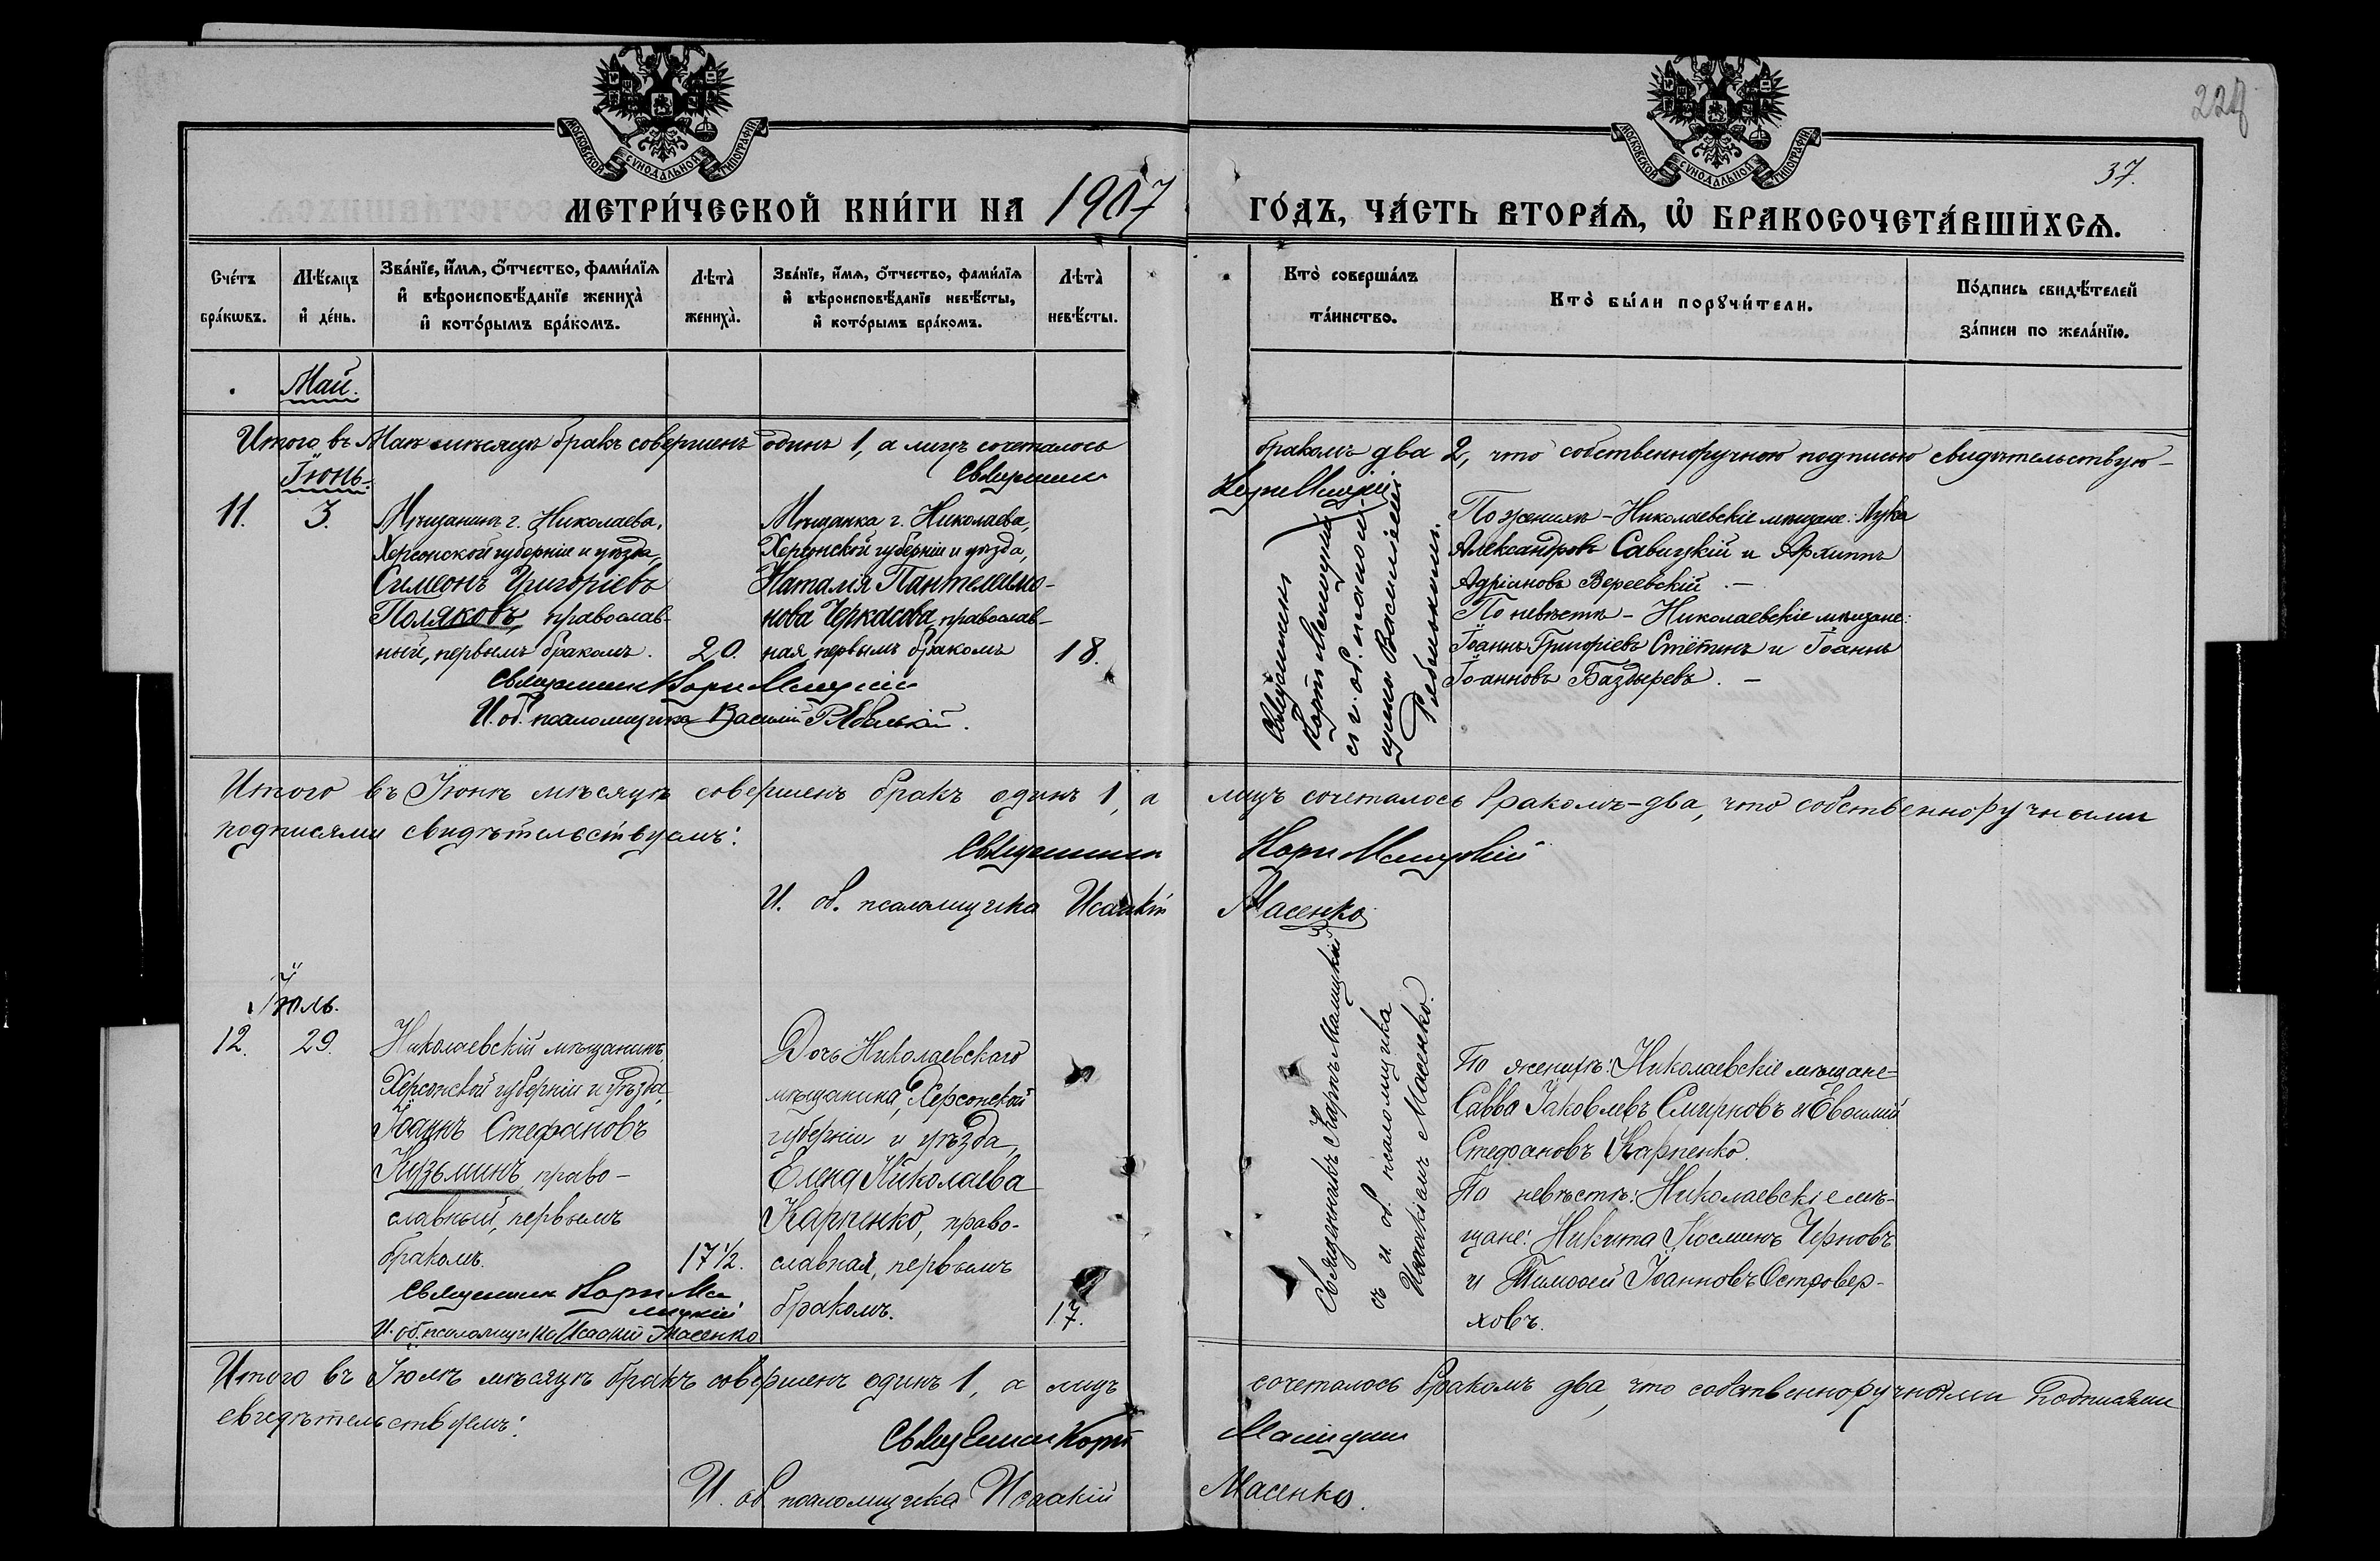 228
37.
МОСКОВСКОЙ СѴНОДАЛЬНОЙ ТИПОГРАФІИ
МОСКОВСКОЙ СѴНОДАЛЬНОЙ ТИПОГРАФІИ
МЕТРИ́ЧЕСКОЙ КНИ́ГИ НА 1907 ГО́ДЪ, ЧА́СТЬ ВТОРА́Ѧ, Ѽ БРАКОСОЧЕТА́ВШИХСѦ.
Сче́тъ бра́кѡвъ.
Мѣ́сяцъ и҆ де́нь.
Зва́нїе, и҆́мѧ, ѻ҆́тчество, фами́лїѧ
и҆ вѣроисповѣ́данїе жениха̀
и҆ кото́рымъ бра́комъ.
Лѣта̀ жениха̀.
Зва́нїе, и҆́мѧ, ѻ҆́тчество, фами́лїѧ
и҆ вѣроисповѣ́данїе невѣ́сты,
и҆ кото́рымъ бра́комъ.
Лѣта̀ невѣ́сты.
Кто̀ соверша́лъ
та́инство.
Кто̀ бы́ли порꙋчи́тели.
По́дпись свидѣ́телей
за́писи по жела́нїю.
Май.
Итого въ Маѣ мѣсяцѣ бракъ совершенъ одинъ 1, а лицъ сочеталось бракомъ два 2, что собственноручною подписью свидѣтельствую-
Священникъ Карпъ Малицкій
Іюнь.
11.
3.
Мѣщанинъ г. Николаева,
Херсонской губерніи и уѣзда,
Симеонъ Григоріевъ
Поляковъ, православ-
ный, первымъ бракомъ.
20.
Мѣщанка г. Николаева,
Херсонской губерніи и уѣзда,
Наталія Пантелеимо-
нова Черкасова, православ-
ная первымъ бракомъ
18.
Священникъ Карпъ Малицкій
И. об. псаломщика Василій Рябенькій.
Священникъ
Карпъ Малицкій
съ и. об. псалом-
щика Василіемъ
Рябенькимъ.
По женихѣ - Николаевскіе мѣщане: Лука
Александровъ Савицкій и Архиппъ
Адріановъ Вереевскій. -
По невѣстѣ - Николаевскіе мѣщане:
Іоаннъ Григоріевъ Стётинъ и Іоаннъ
Іоанновъ Баздыревъ. -
Итого въ Іюнѣ мѣсяцѣ совершенъ бракъ одинъ 1, а лицъ сочеталось бракомъ-два, что собственноручными
подписями свидѣтельствуемъ:
Священникъ Карпъ Малицкій
И. об. псаломщика Исаакій Масенко
Іюль.
12.
29.
Николаевскій мѣщанинъ,
Херсонской губерніи и уѣзда,
Іоаннъ Стефановъ
Кузьминъ, право-
славный, первымъ
бракомъ.
17½.
Дочь Николаевскаго
мѣщанина, Херсонской
губерніи и уѣзда,
Елена Николаева
Карпенко, право-
славная, первымъ
бракомъ.
17.
Священникъ Карпъ Ма
лицкій
И. об. псаломщика Исаакій Масенко
Священникъ Карпъ Малицкій
съ и. об. псаломщика
Исаакіемъ Масенко.
По женихѣ: Николаевскіе мѣщане-
Савва Іаковлевъ Смирновъ и Евѳимій
Стефановъ Карпенко.
По невѣстѣ: Николаевскіе мѣ-
щане: Никита Косминъ Черновъ
и Тимоѳей Іоанновъ Островер-
ховъ.
Итого въ Іюлѣ мѣсяцѣ бракъ совершенъ одинъ 1, а лицъ сочеталось бракомъ два, что собственноручными подписями
свидѣтельствуемъ:
Священникъ Карпъ Малицкій
И. об. псаломщика Исаакій Масенко.